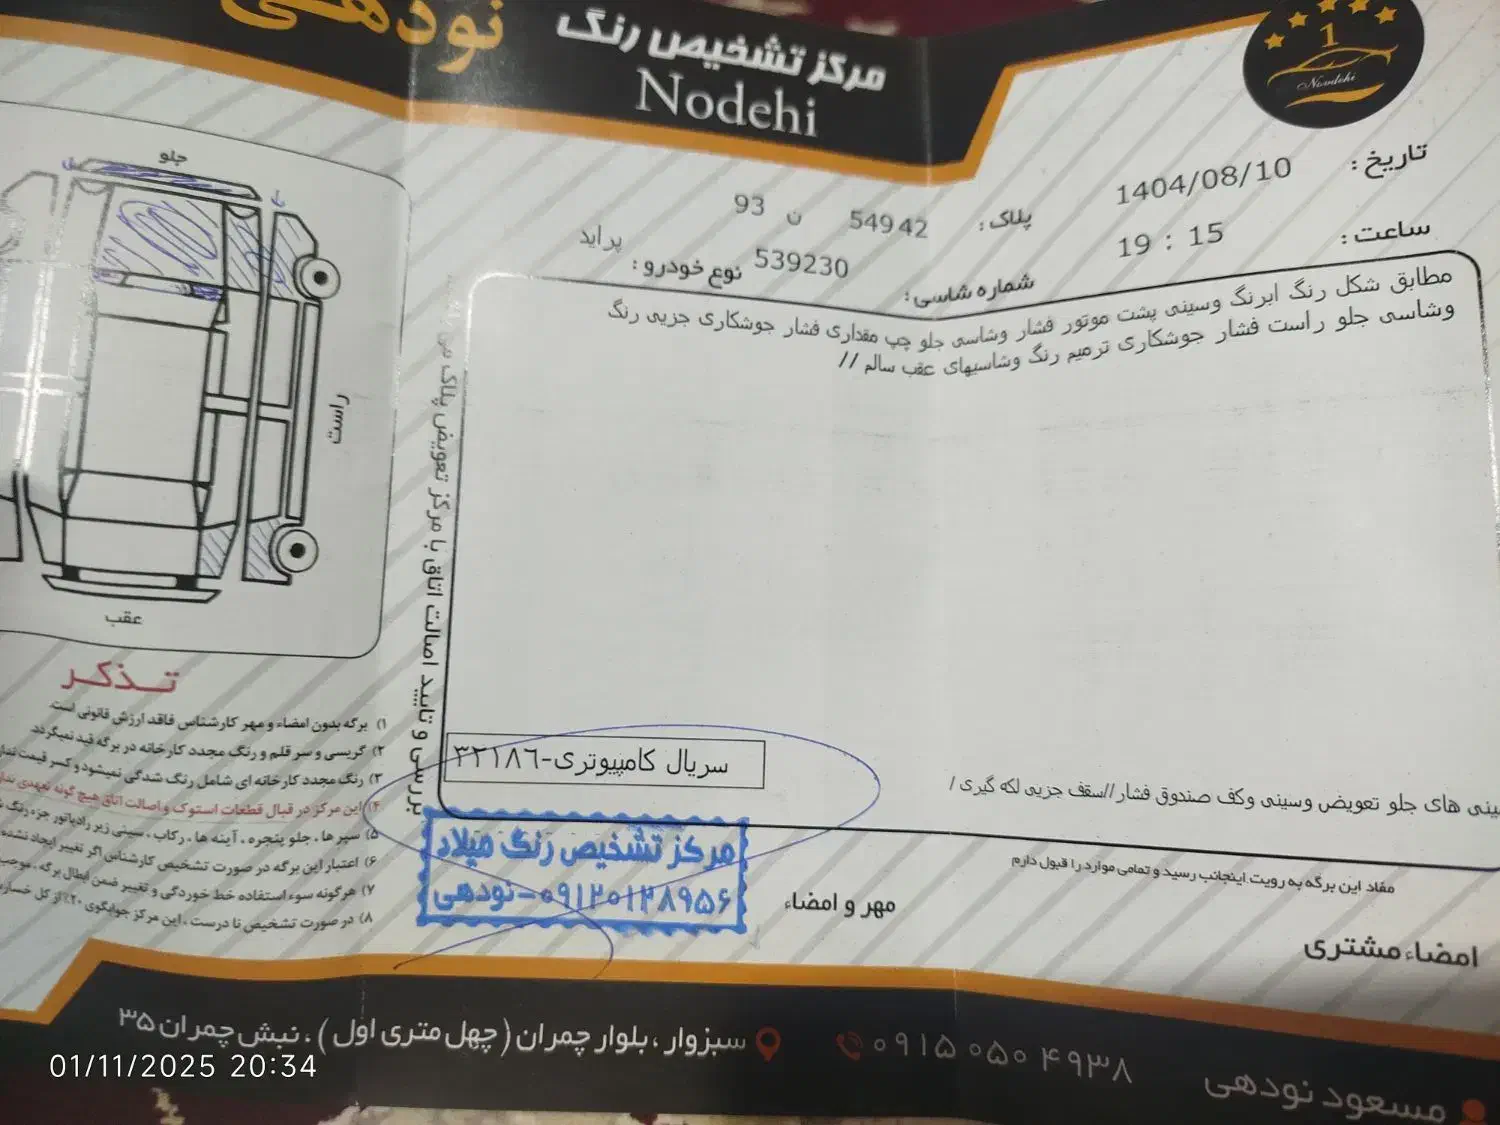 مرکز تشخیص رنگ
نودهی
Nodehi
1
Nomdehi
تاریخ : 1404/08/10
ساعت : 19 : 15
پلاک : 54942 ن 93
شماره شاسی : 539230
نوع خودرو : پراید
مطابق شکل رنگ ابرنگ وسینی پشت موتور فشار وشاسی جلو چپ مقداری فشار جوشکاری جزیی رنگ
وشاسی جلو راست فشار جوشکاری ترمیم رنگ وشاسیهای عقب سالم //
سینی های جلو تعویض وسینی وکف صندوق فشار//سقف جزیی لکه گیری /
سریال کامپیوتری-۳۲۱۸۶
بررسی و تایید اصالت اتاق با مرکز تعویض پلاک می
جلو
راست
عقب
تـذکـر
۱) برگه بدون امضاء و مهر کارشناس فاقد ارزش قانونی است.
۲) گریسی و سر قلم و رنگ مجدد کارخانه در برگه قید نمیگردد.
۳) رنگ مجدد کارخانه ای شامل رنگ شدگی نمیشود و کسر قیمت
۴) این مرکز در قبال قطعات استوک و اصالت اتاق هیچ گونه تعهدی
۵) سپر ها ، جلو پنجره ، آینه ها ، رکاب ، سینی زیر رادیاتور جزء رنگ
۶) اعتبار این برگه در صورت تشخیص کارشناس اگر تغییر ایجاد نشده
۷) هرگونه سوء استفاده خط خوردگی و تغییر ضمن ابطال برگه ،
۸) در صورت تشخیص نا درست ، این مرکز جوابگوی ۲۰٪ از کل
مفاد این برگه به رویت اینجانب رسید و تمامی موارد را قبول دارم
مهر و امضاء
امضاء مشتری
مرکز تشخیص رنگ میلاد
۰۹۱۲۰۱۲۸۹۵۶-نودهی
سبزوار ، بلوار چمران ( چهل متری اول ) ، نبش چمران ۳۵
۰۹۱۵ ۰۵۰ ۴۹۳۸
مسعود نودهی
01/11/2025 20:34